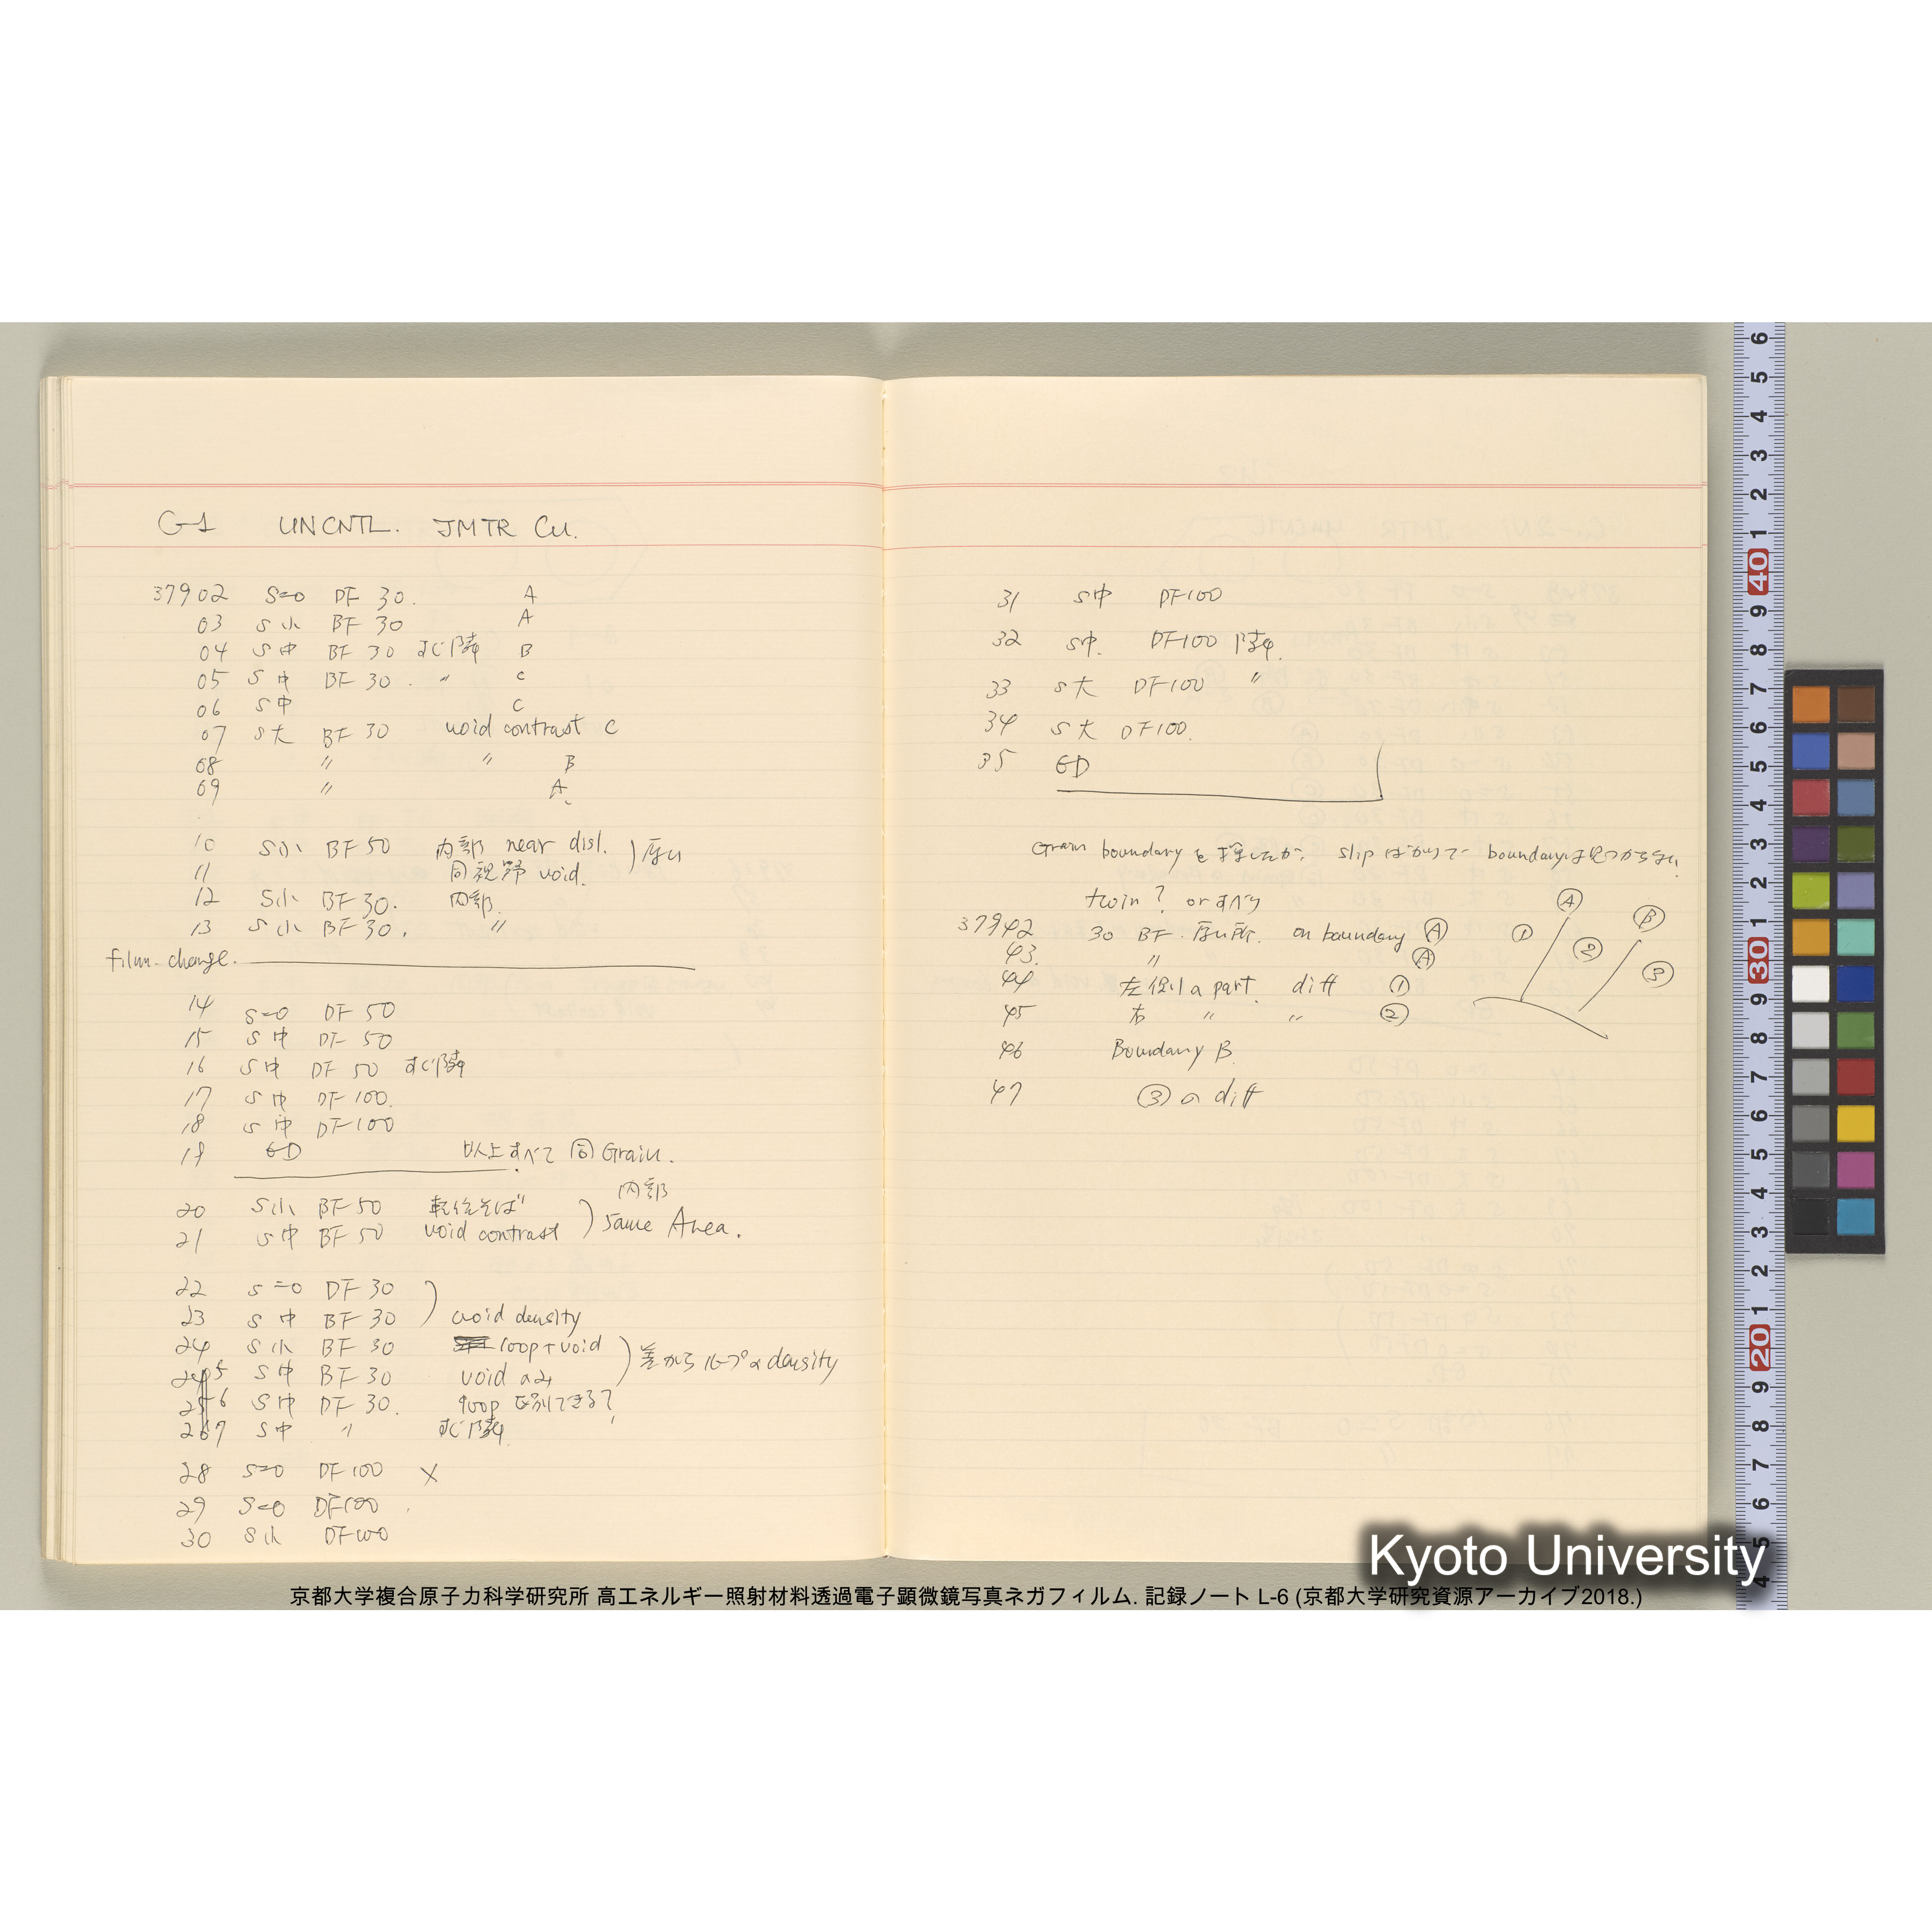 G-1 UNCNTL. JMTR Cu.
37902 S=0 DF 30. A
03 S小 BF 30 A
04 S中 BF 30 すぐ隣 B
05 S中 BF 30. 〃 C
06 S中 C
07 S大 BF 30 void contrast C
08 〃 〃 B
09 〃 A.
10 S小 BF 50 内部 near disl. ) 厚い
11 同視野 void.
12 S小 BF 30. 内部.
13 S小 BF 30. 〃
film change.
14 S=0 DF 50
15 S中 DF 50
16 S中 DF 50 すぐ隣
17 S中 DF 100.
18 S中 DF 100
19 ED 以上すべて 同 Grain.
20 S小 BF 50 転位そば ) 内部
21 S中 BF 50 void contrast same Area.
22 S=0 DF 30 )
23 S中 BF 30 void density
24 S小 BF 30 loop+void ) 差からループの density
25 S中 BF 30 void のみ
26 S中 DF 30. loop 区別できる?
27 S中 〃 すぐ隣
28 S=0 DF 100 ×
29 S=0 DF 100
30 S小 DF 100
31 S中 DF 100
32 S中. DF 100 隣.
33 S大 DF 100 〃
34 S大 DF 100.
35 ED
Grain boundary を探したが, slip ばかりで boundaryは見つからない
twin? or すべり
37942 30 BF. 厚い所. on boundary Ⓐ
43. 〃 Ⓐ
44 左側の part. diff ①
45 右 〃 〃 ②
46 Boundary B.
47 ③ の diff
Ⓐ Ⓑ
① ② ③
6 5 4 3 2 1 40 9 8 7 6 5 4 3 2 1 30 9 8 7 6 5 4 3 2 1 20 9 8 7 6 5 4
Kyoto University
京都大学複合原子力科学研究所 高エネルギー照射材料透過電子顕微鏡写真ネガフィルム. 記録ノート L-6 (京都大学研究資源アーカイブ2018.)